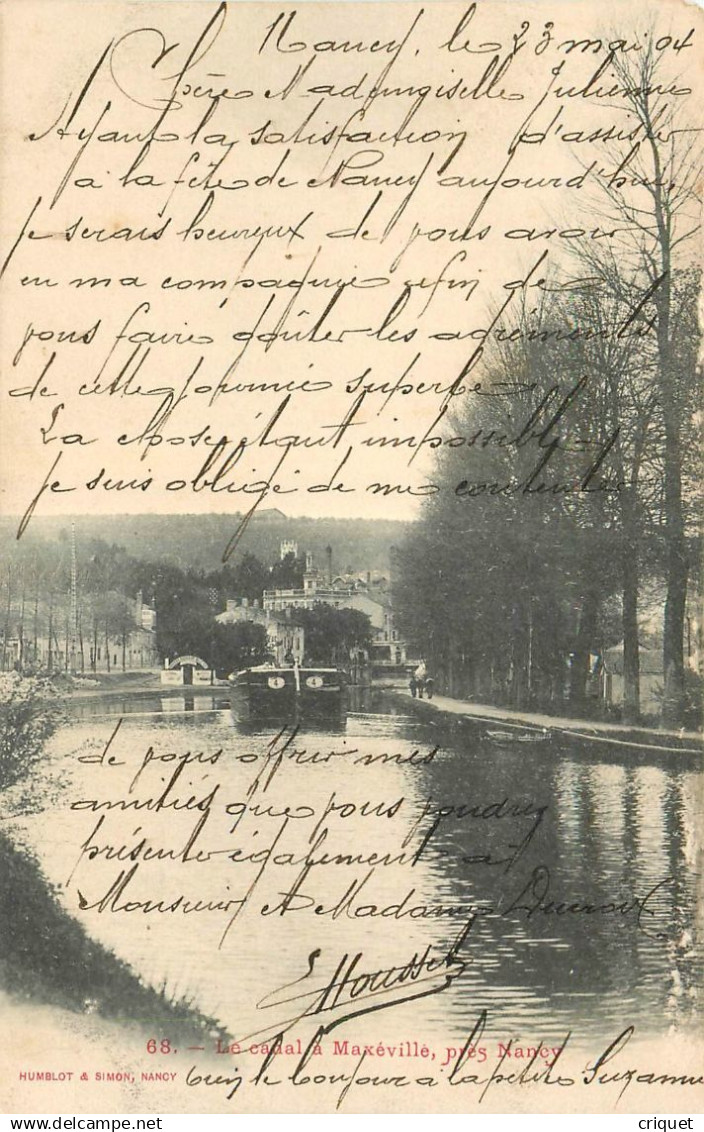 Nancy, le 23 mai 04
Chère Mademoiselle Julienne
Ayant la satisfaction d'assister
à la fête de Nancy aujourd'hui,
je serais heureux de vous avoir
en ma compagnie afin de
vous faire goûter les agréments
de cette journée superbe
La chose étant impossible -
je suis obligé de me contenter
de vous offrir mes
amitiés que vous voudrez
présenter également à
Monsieur et Madame Ducroux
Housset
68. - Le canal à Maxéville, près Nancy
HUMBLOT & SIMON, NANCY
bien le bonjour à la petite Suzanne
criquet